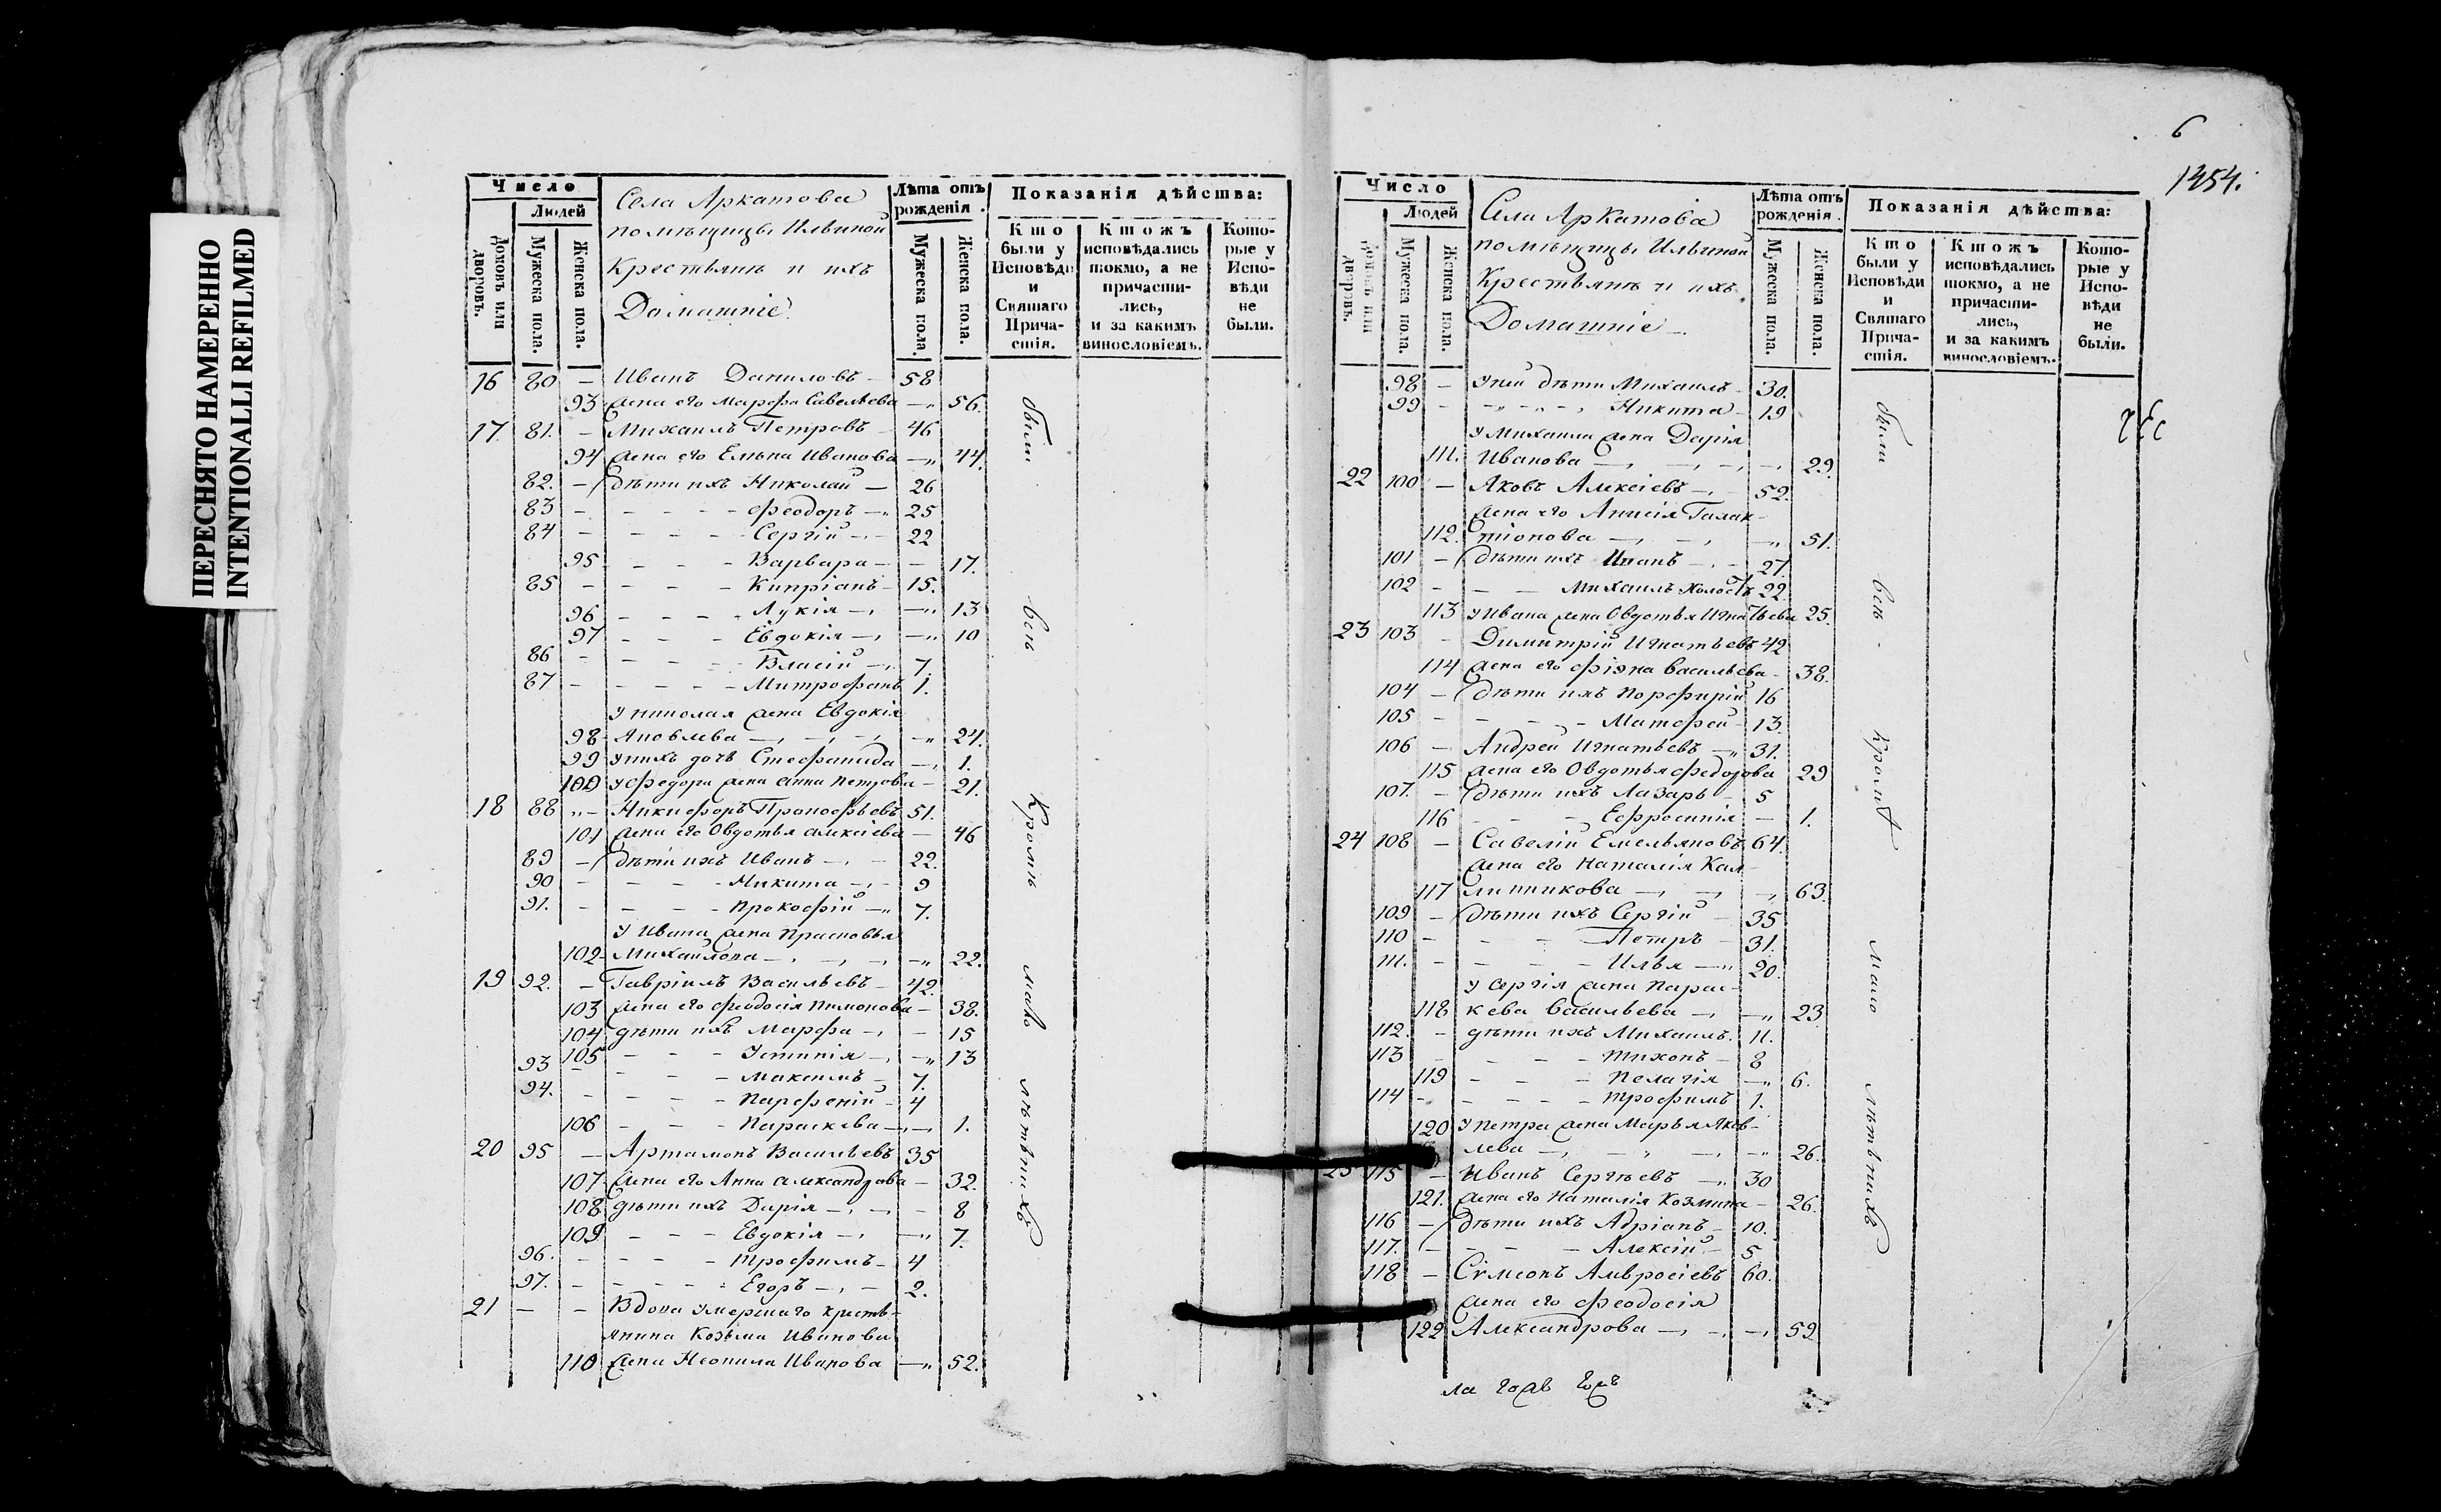 ПЕРЕСНЯТО НАМЕРЕННО
INTENTIONALLI REFILMED
Число
Людей
Домовъ или дворовъ.
Мужеска пола.
Женска пола.
Села Аркатова
помѣщицы Ильиной
Крестьянъ и ихъ
Домашніе.
Лѣта отъ рожденія.
Мужеска пола.
Женска пола.
Показанія дѣйства:
Кто были у Исповѣди и Святаго Причастія.
Ктожъ исповѣдались токмо, а не причастились, и за какимъ винословіемъ.
Которые у Исповѣди не были.
16 80 — Иванъ Даниловъ — 58
93 жена его Марѳа Савельева — 56.
17. 81. — Михаилъ Петровъ — 46
94 жена его Елѣна Иванова — 44.
82. — дѣти ихъ Николай — 26
83 — Феодоръ — 25
84 — Сергій — 22
95 — Варвара — 17.
85 — Кипріанъ — 15.
96 — Лукія — 13
97 — Евдокія — 10
86 — Власій — 7.
87 — Митрофанъ 1.
У николая жена Евдокія
98 Яковлева — 24.
99 у нихъ дочь Стефанида — 1.
100 у Федора жена Анна Петрова — 21.
18 88 — Никифоръ Прокофьевъ 51.
101 жена его Овдотья Алексіева — 46
89 — дѣти ихъ Иванъ — 22.
90 — Никита — 9
91. — Прокофій — 7.
У Ивана жена Прасковья
102 Михайлова — 22.
19 92. — Гавріилъ Васильевъ — 42.
103 жена его Феодосія Пимонова — 38.
104 дѣти ихъ Марфа — 15
105 — Устинія — 13
93 — Максимъ — 7.
94. — Парфеній — 4
106 — Параскева — 1.
20 95 — Артамонъ Васильевъ 35
107 жена его Анна Александрова — 32.
108 дѣти ихъ Дарія — 8
109 — Евдокія — 7.
96. — Трофимъ — 4
97. — Егоръ — 2.
21 — — Вдова умершаго кресть-
янина Козьмы Иванова
110 жена Неонила Иванова — 52.
были
всѣ
Кромѣ
мало
лѣтнихъ
6
1454.
Число
Людей
Домовъ или дворовъ.
Мужеска пола.
Женска пола.
Села Аркатова
помѣщицы Ильиной
Крестьянъ и ихъ
Домашніе —
Лѣта отъ рожденія.
Мужеска пола.
Женска пола.
Показанія дѣйства:
Кто были у Исповѣди и Святаго Причастія.
Ктожъ исповѣдались токмо, а не причастились, и за какимъ винословіемъ.
Которые у Исповѣди не были.
98 — У ней дѣти Михаилъ — 30.
99 — Никита — 19
У Михаила жена Дарія
111. Иванова — 29.
22 100 — Яковъ Алексіевъ — 52.
жена его Анисія Галак-
112. тіонова — 51.
101 — дѣти ихъ Иванъ — 27.
102 — Михаилъ холостъ 22.
113 У Ивана жена Овдотья Игнатьева 25.
23 103 — Димитрій Игнатьевъ 42
114 жена его Васильева — 38.
104 — дѣти ихъ Порфирій 16
105 — Матфей — 13.
106 — Андрей Игнатьевъ — 31.
115 жена его Овдотья Федорова 29
107. — дѣти ихъ Лазарь — 5
116 — Ефросинія — 1.
24 108 — Савелій Емельяновъ 64.
жена его Наталія Кал-
117 линникова — 63.
109 — дѣти ихъ Сергій — 35
110 — Петръ — 31.
111. — Илья — 20.
У Сергія жена Парас-
118 кева Васильева — 23
112. — дѣти ихъ Михаилъ. 11.
113 — Тихонъ — 8
119 — Пелагія — 6.
114 — Трофимъ 1.
120 У петра жена Марья Яков-
лева — 26.
25 115 — Иванъ Сергѣевъ — 30
121. жена его Наталія Козмина — 26.
116 — дѣти ихъ Адріанъ — 10.
117. — Алексій — 5
118 — Сѵмеонъ Амвросіевъ 60.
жена его Феодосія
122 Александрова — 59.
были
всѣ
Кромѣ
мало
лѣтнихъ